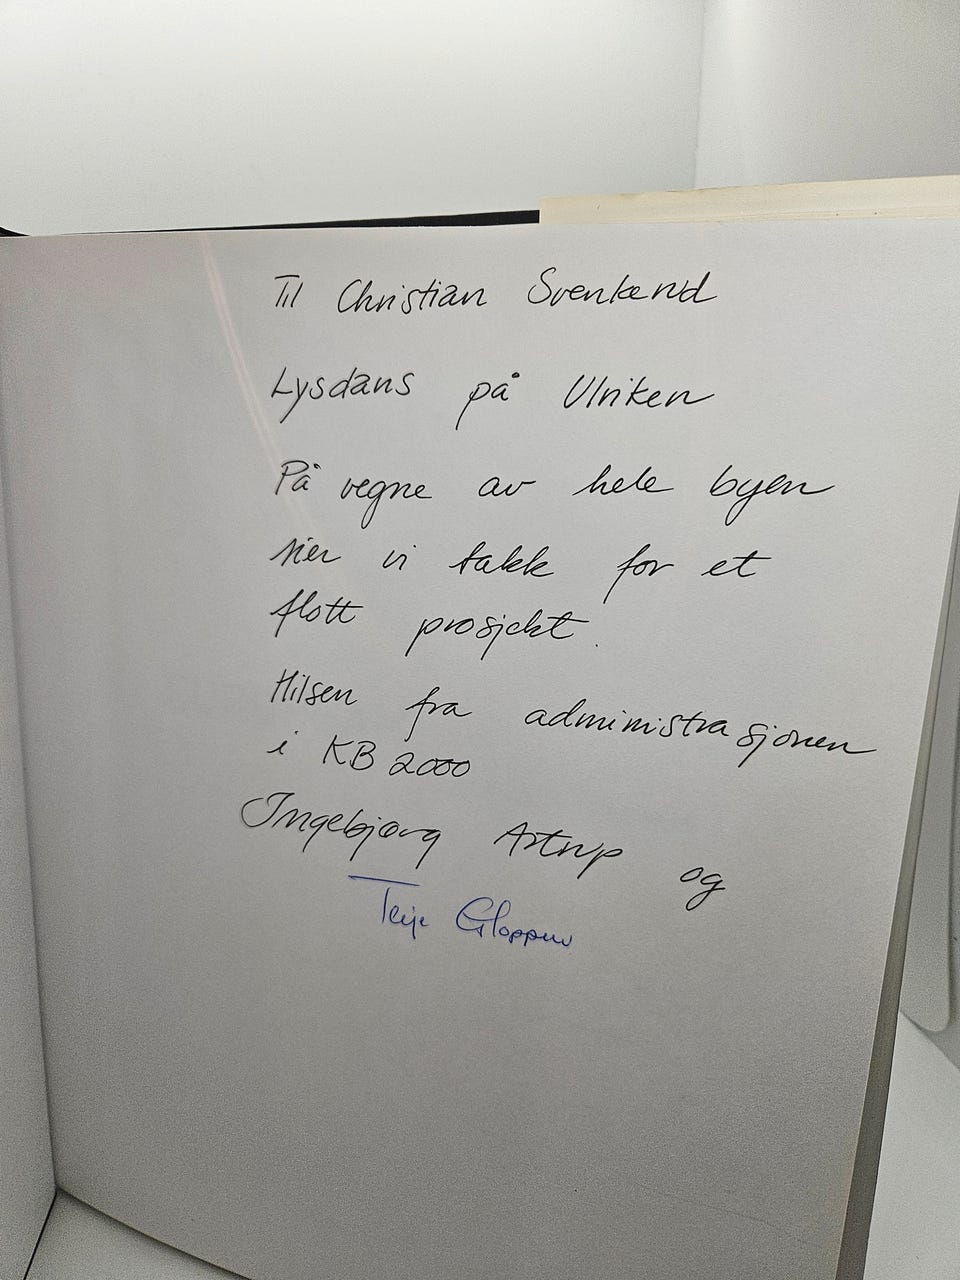 Til Christian Svenkerud
Lysdans på Ulriken
På vegne av hele byen
sier vi takk for et
flott prosjekt.
Hilsen fra administrasjonen
i KB 2000
Ingebjørg Astrup og
Terje Gloppen